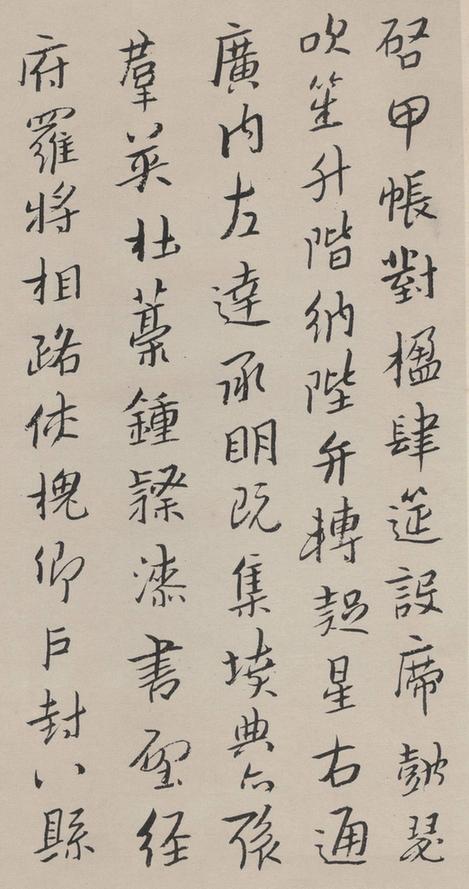 啓甲帳對楹肆筵設席皷瑟
吹笙升階納陛弁轉疑星右通
廣内左達承明既集墳典亦聚
羣英杜藁鍾隸漆書壁経
府羅將相路俠槐卿戶封八縣